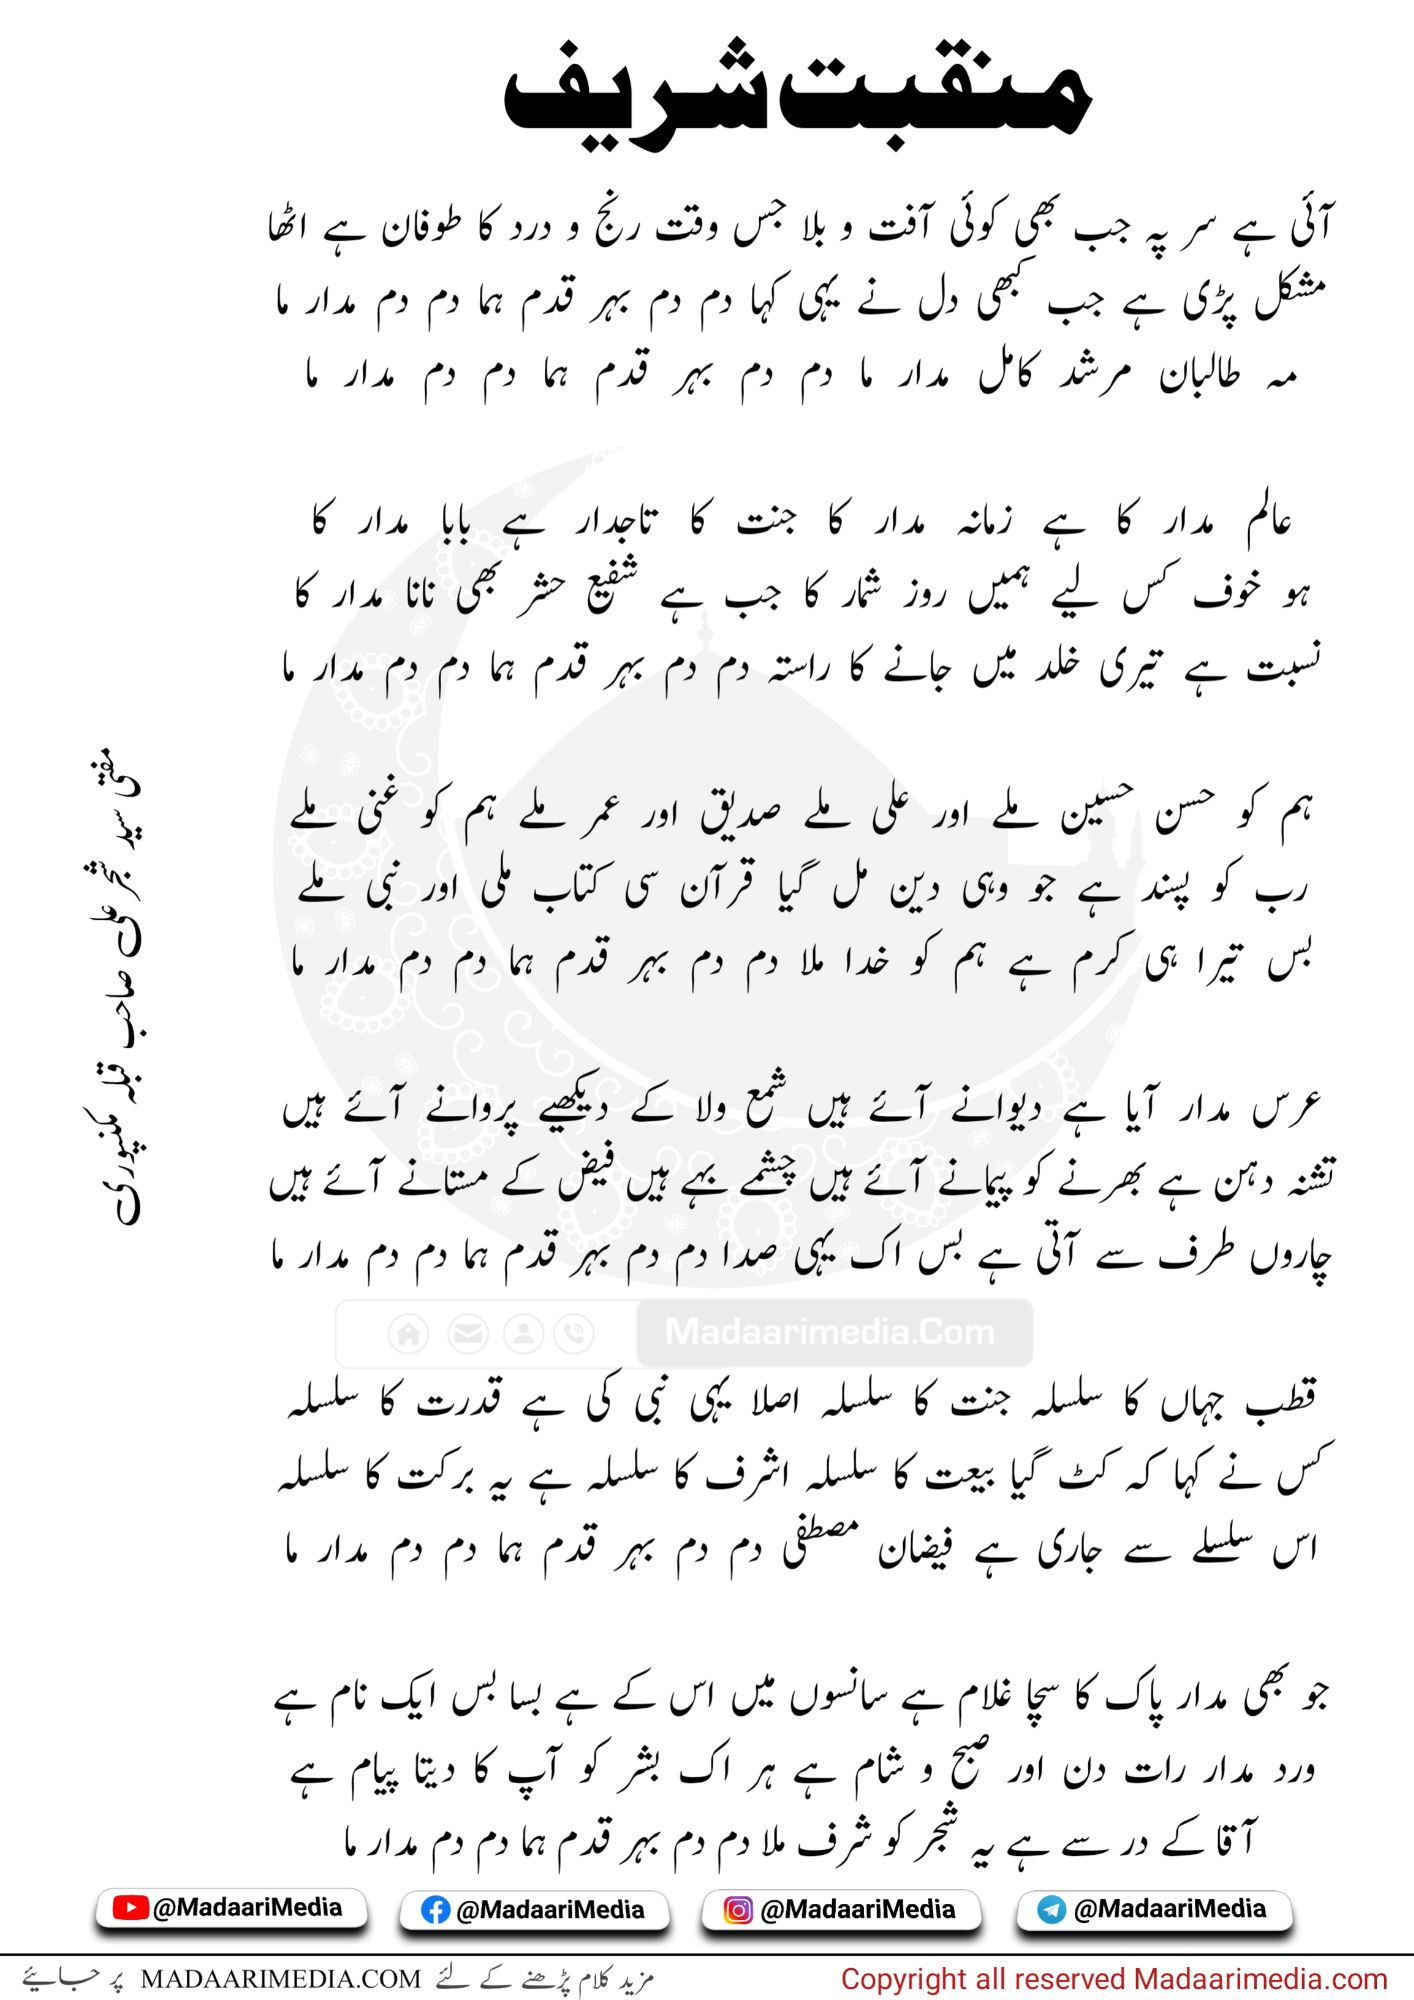 منقبت شریف
آئی ہے سر پہ جب بھی کوئی آفت و بلا جس وقت رنج و درد کا طوفان ہے اٹھا
مشکل پڑی ہے جب کبھی دل نے یہی کہا دم دم بہر قدم ہما دم دم مدار ما
مہ طالبان مرشد کامل مدار ما دم دم بہر قدم ہما دم دم مدار ما
عالم مدار کا ہے زمانہ مدار کا جنت کا تاجدار ہے بابا مدار کا
ہو خوف کس لیے ہمیں روز شمار کا جب ہے شفیع حشر بھی نانا مدار کا
نسبت ہے تیری خلد میں جانے کا راستہ دم دم بہر قدم ہما دم دم مدار ما
ہم کو حسن حسین ملے اور علی ملے صدیق اور عمر ملے ہم کو غنی ملے
رب کو پسند ہے جو وہی دین مل گیا قرآن سی کتاب ملی اور نبی ملے
بس تیرا ہی کرم ہے ہم کو خدا ملا دم دم بہر قدم ہما دم دم مدار ما
عرس مدار آیا ہے دیوانے آئے ہیں شمع ولا کے دیکھیے پروانے آئے ہیں
تشنہ دہن ہے بھرنے کو پیمانے آئے ہیں چشمے بہے ہیں فیض کے مستانے آئے ہیں
چاروں طرف سے آتی ہے بس اک یہی صدا دم دم بہر قدم ہما دم دم مدار ما
Madaarimedia.Com
قطب جہاں کا سلسلہ جنت کا سلسلہ اصلا یہی نبی کی ہے قدرت کا سلسلہ
کس نے کہا کہ کٹ گیا بیعت کا سلسلہ اشرف کا سلسلہ ہے یہ برکت کا سلسلہ
اس سلسلے سے جاری ہے فیضان مصطفی دم دم بہر قدم ہما دم دم مدار ما
جو بھی مدار پاک کا سچا غلام ہے سانسوں میں اس کے ہے بسا بس ایک نام ہے
ورد مدار رات دن اور صبح و شام ہے ہر اک بشر کو آپ کا دیتا پیام ہے
آقا کے در سے ہے یہ شجر کو شرف ملا دم دم بہر قدم ہما دم دم مدار ما
مفتی سید شجر علی صاحب قبلہ مکنپوری
@MadaariMedia @MadaariMedia @MadaariMedia @MadaariMedia
مزید کلام پڑھنے کے لئے MADAARIMEDIA.COM پر جائیے
Copyright all reserved Madaarimedia.com